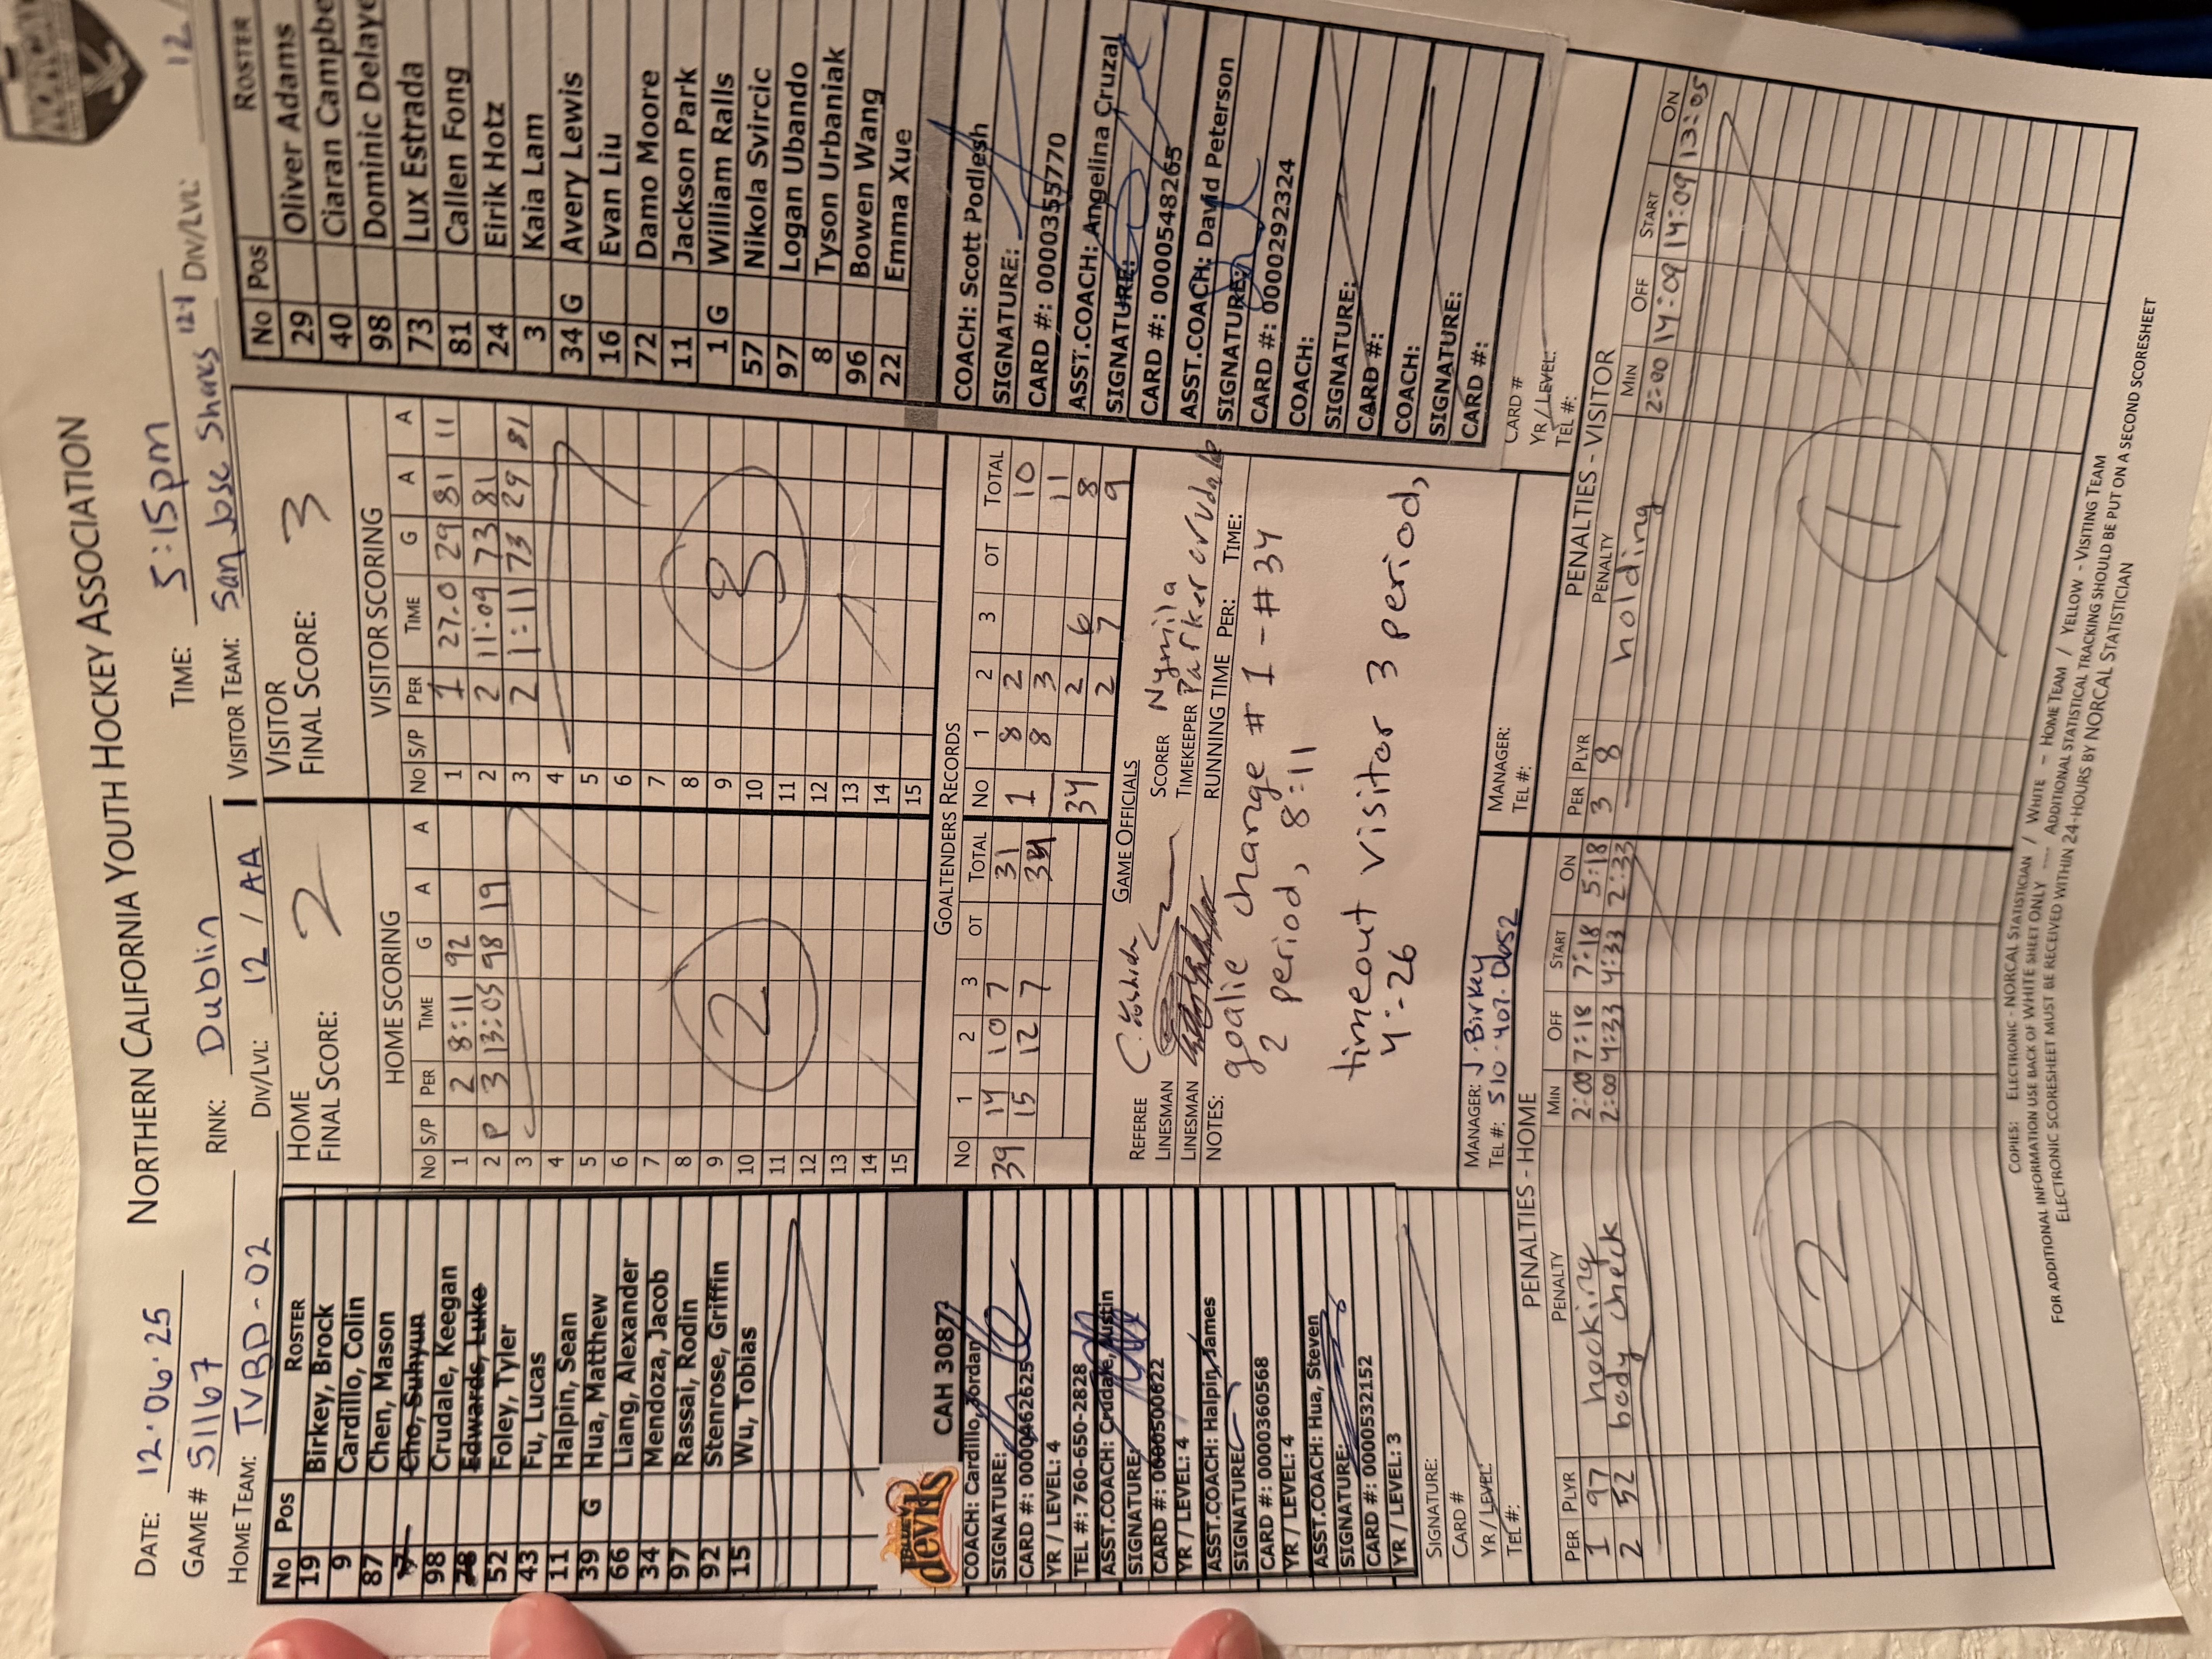 NORTHERN CALIFORNIA YOUTH HOCKEY ASSOCIATION
NORCAL
DATE: 12.06.25
RINK: Dublin
TIME: 5:15pm
GAME # 51167
DIV/LVL: 12 / AA
VISITOR TEAM: San Jose Sharks 12-1
DIV/LVL: 12
HOME TEAM: TVBD-02
No Pos ROSTER
19 Birkey, Brock
9 Cardillo, Colin
87 Chen, Mason
Cho, Suhyun
98 Crudale, Keegan
78 Edwards, Luke
52 Foley, Tyler
43 Fu, Lucas
11 Halpin, Sean
39 G Hua, Matthew
66 Liang, Alexander
34 Mendoza, Jacob
97 Rassai, Rodin
92 Stenrose, Griffin
15 Wu, Tobias
BLUE devils
CAH 3087
COACH: Cardillo, Jordan
SIGNATURE:
CARD #: 0000462625
YR / LEVEL: 4
TEL #: 760-650-2828
ASST.COACH: Crudale, Austin
SIGNATURE:
CARD #: 0000500622
YR / LEVEL: 4
ASST.COACH: Halpin, James
SIGNATURE:
CARD #: 0000360568
YR / LEVEL: 4
ASST.COACH: Hua, Steven
SIGNATURE:
CARD #: 0000532152
YR / LEVEL: 3
SIGNATURE:
CARD #
YR / LEVEL:
TEL #:
HOME
FINAL SCORE: 2
HOME SCORING
No S/P PER TIME G A A
1 2 8:11 92
2 P 3 13:05 98 19
3
4
5
6
7
8
9
10
11
12
13
14
15
2
VISITOR
FINAL SCORE: 3
VISITOR SCORING
No S/P PER TIME G A A
1 1 27.0 29 81 11
2 2 11:09 73 81
3 2 1:11 73 29 81
4
5
6
7
8
9
10
11
12
13
14
15
3
GOALTENDERS RECORDS
No 1 2 3 OT TOTAL
39 14 10 7 31
15 12 7 34
No 1 2 3 OT TOTAL
1 8 2 10
8 3 11
34 2 6 8
2 7 9
GAME OFFICIALS
REFEREE
LINESMAN
LINESMAN
SCORER Nymila
TIMEKEEPER Parker crudale
RUNNING TIME PER: TIME:
NOTES: goalie change #1 - #34
2 period, 8:11
timeout visitor 3 period,
4:26
MANAGER: J. Birkey
TEL #: 510.407.0052
MANAGER:
TEL #:
No Pos ROSTER
29 Oliver Adams
40 Ciaran Campbe
98 Dominic Delaye
73 Lux Estrada
81 Callen Fong
24 Eirik Hotz
3 Kaia Lam
34 G Avery Lewis
16 Evan Liu
72 Damo Moore
11 Jackson Park
1 G William Ralls
57 Nikola Svircic
97 Logan Ubando
8 Tyson Urbaniak
96 Bowen Wang
22 Emma Xue
COACH: Scott Podlesh
SIGNATURE:
CARD #: 0000355770
ASST.COACH: Angelina Cruzal
SIGNATURE:
CARD #: 0000548265
ASST.COACH: David Peterson
SIGNATURE:
CARD #: 0000292324
COACH:
SIGNATURE:
CARD #:
COACH:
SIGNATURE:
CARD #:
CARD #
YR / LEVEL:
TEL #:
PENALTIES - HOME
PER PLYR PENALTY MIN OFF START ON
1 97 hooking 2:00 7:18 7:18 5:18
2 52 body check 2:00 4:33 4:33 2:33
2
PENALTIES - VISITOR
PER PLYR PENALTY MIN OFF START ON
3 8 holding 2:00 14:09 14:09 13:05
1
COPIES: ELECTRONIC - NORCAL STATISTICIAN / WHITE - HOME TEAM / YELLOW - VISITING TEAM
FOR ADDITIONAL INFORMATION USE BACK OF WHITE SHEET ONLY ---- ADDITIONAL STATISTICAL TRACKING SHOULD BE PUT ON A SECOND SCORESHEET
ELECTRONIC SCORESHEET MUST BE RECEIVED WITHIN 24-HOURS BY NORCAL STATISTICIAN